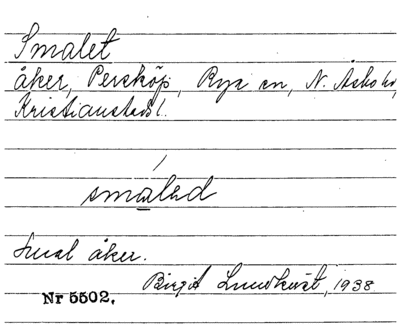 Smalet
åker, Persköp, Rya sn, N. Åsbo hd,
Kristianstads l.
smalad
Smal åker.
Birgit Lundkvist, 1938
Nr 5502.